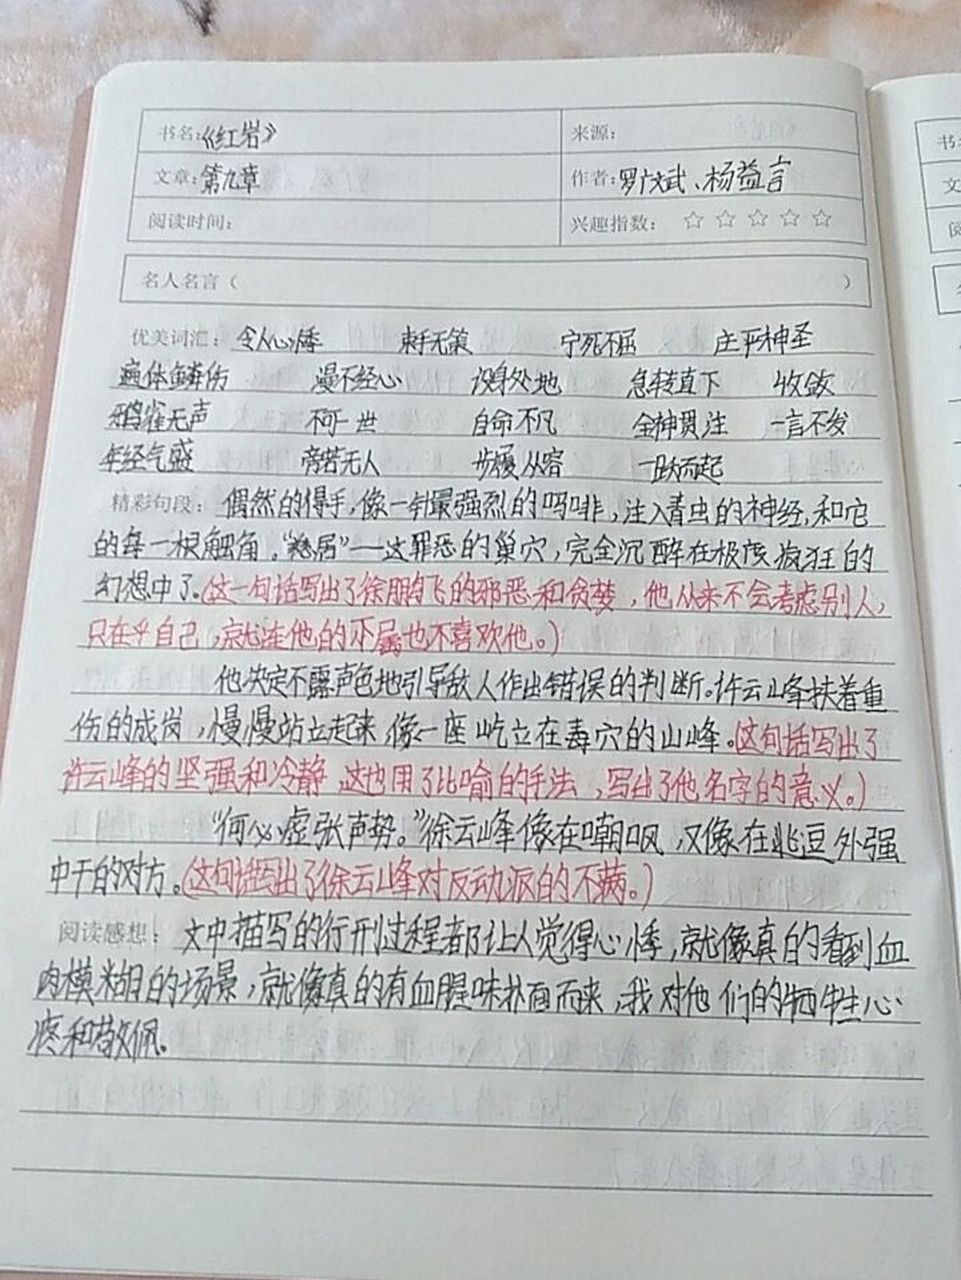 书名:《红岩》 来源:
文章:第九章 作者:罗广斌、杨益言
阅读时间: 兴趣指数: ☆ ☆ ☆ ☆ ☆
名人名言( )
优美词汇: 令人心悸 束手无策 宁死不屈 庄严神圣
遍体鳞伤 漫不经心 设身处地 急转直下 收敛
鸦雀无声 不可一世 自命不凡 全神贯注 一言不发
年经气盛 旁若无人 步履从容 一跃而起
精彩句段: 偶然的得手,像一针最强烈的吗啡,注入青虫的神经,和它
的每一根触角。"慈居"—这罪恶的巢穴,完全沉醉在极度疯狂的
幻想中了。(这一句话写出了徐鹏飞的邪恶和贪婪,他从来不会考虑别人,
只在乎自己,就连他的下属也不喜欢他。)
他决定不露声色地引导敌人作出错误的判断。许云峰扶着重
伤的成岗,慢慢站立起来像一座屹立在毒穴的山峰。(这句话写出了
许云峰的坚强和冷静,这也用了比喻的手法,写出了他名字的意义。)
"何必虚张声势。"徐云峰像在嘲讽,又像在挑逗外强
中干的对方。(这句话写出了徐云峰对反动派的不满。)
阅读感想: 文中描写的行刑过程都让人觉得心悸,就像真的看到血
肉模糊的场景,就像真的有血腥味扑面而来,我对他们的牺牲心
疼和敬佩。